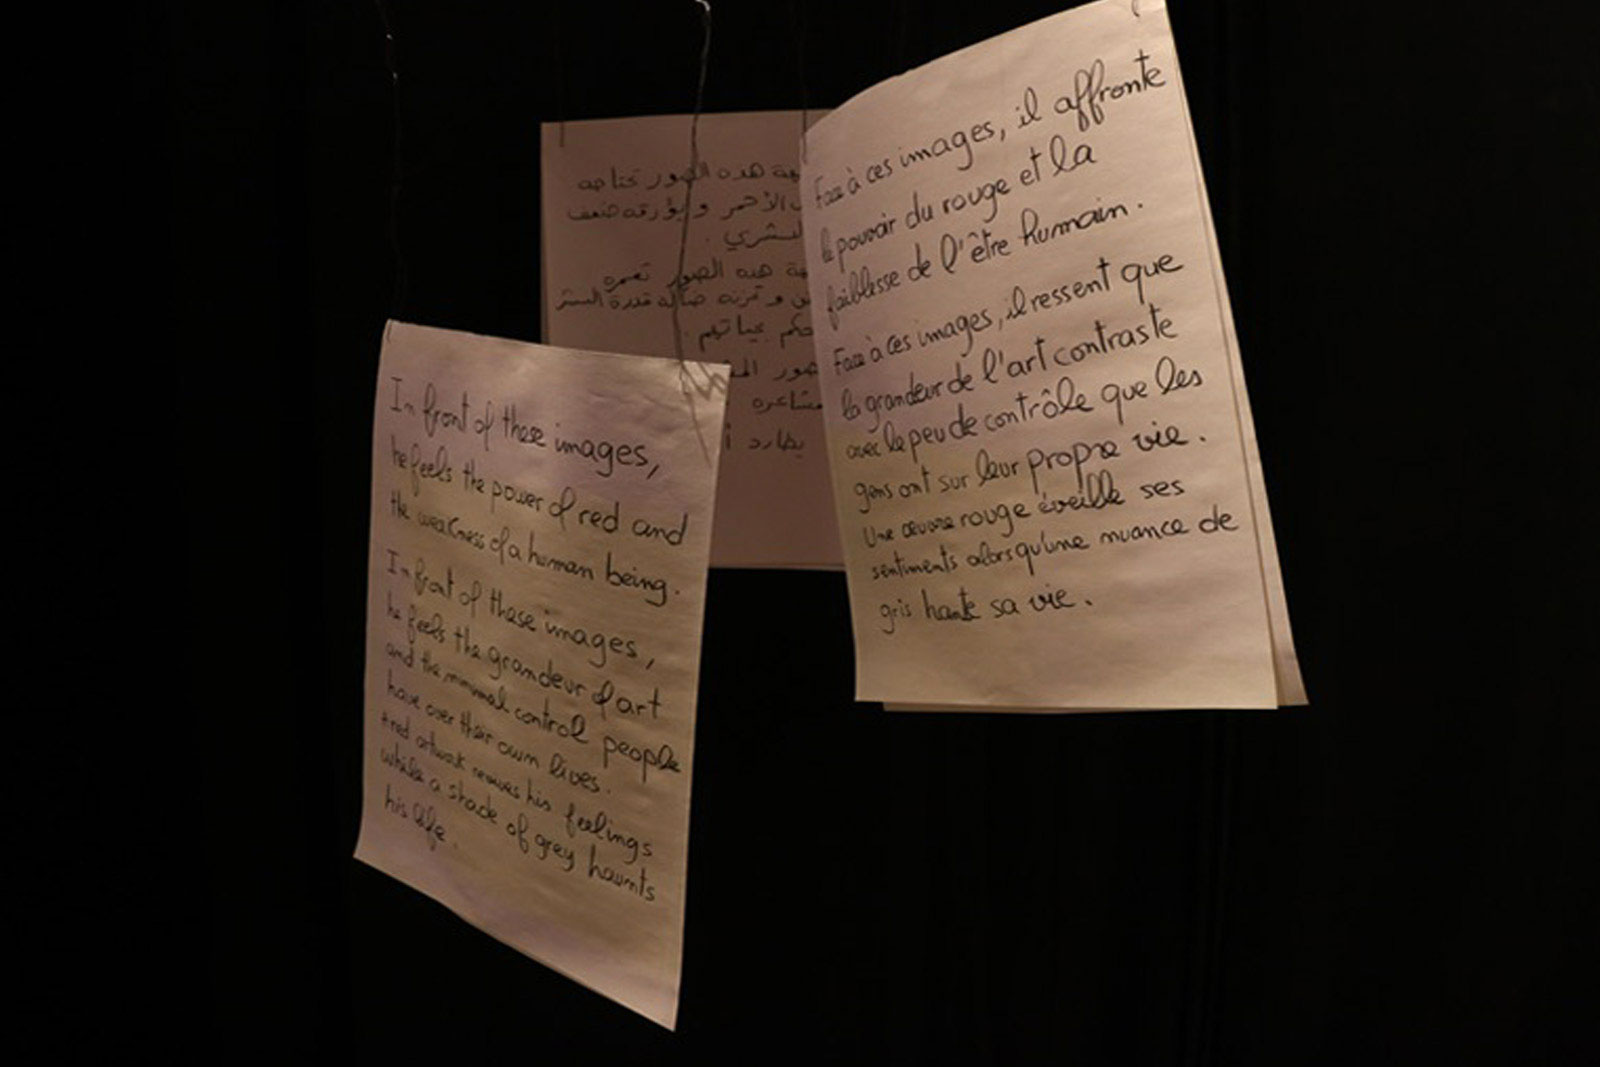 In front of these images,
he feels the power of red and
the weakness of a human being.
In front of these images,
he feels the grandeur of art
and the minimal control people
have over their own lives.
A red artwork revives his feelings
while a shade of grey haunts
his life.
هذه الصور تجتاحه
الأحمر و يؤرقه ضعف
البشري.
هذه الصور تغمره
و تحزنه ضآلة قدرة البشر
بحياتهم.
مشاعره
يطارد
Face à ces images, il affronte
le pouvoir du rouge et la
faiblesse de l'être humain.
Face à ces images, il ressent que
la grandeur de l'art contraste
avec le peu de contrôle que les
gens ont sur leur propre vie.
Une œuvre rouge éveille ses
sentiments alors qu'une nuance de
gris hante sa vie.